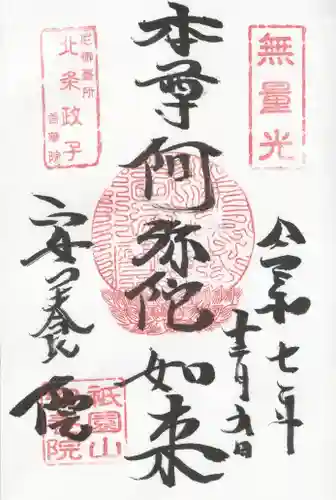 無量光
令和七年
本尊阿弥陀如来
尼御臺所
北条政子
安養院
祇園山
安養院